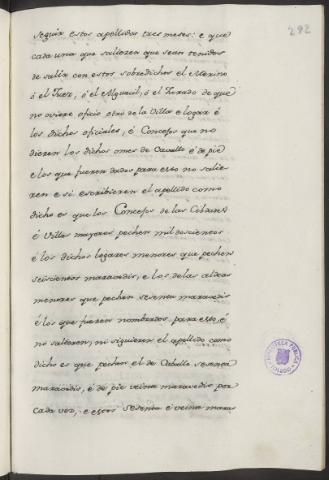 292
seguir estos apellidos tres meses: e que
cada una que salieren que sean tenidos
de salir con estos sobredichos el Merino
ó el Juez, ó el Alguacil, ó el Jurado de que
no oviere oficio otro de la Villa e logar é
los dichos oficiales, é Concejos que no
dieren los dichos omes de Cavallo é de pie
e los que fueren dados para esto no salie-
ren e si escribieren el apellido como
dicho es que los Concejos de las Cibdades
é Villas mayores pechen mil doscientos
é los dichos logares menores que pechen
seiscientos maravedis, e los de las aldeas
menores que pechen sesenta maravedis
é los que fueren nombrados para esto, é
no salieren, ni siguieren el apellido como
dicho es que pechen el de Cavallo sesenta
maravedis, é de pie veinte maravedis por
cada vez, e estos sesenta é veinte mara-
BIBLIOTECA PUBLICA
TOLEDO